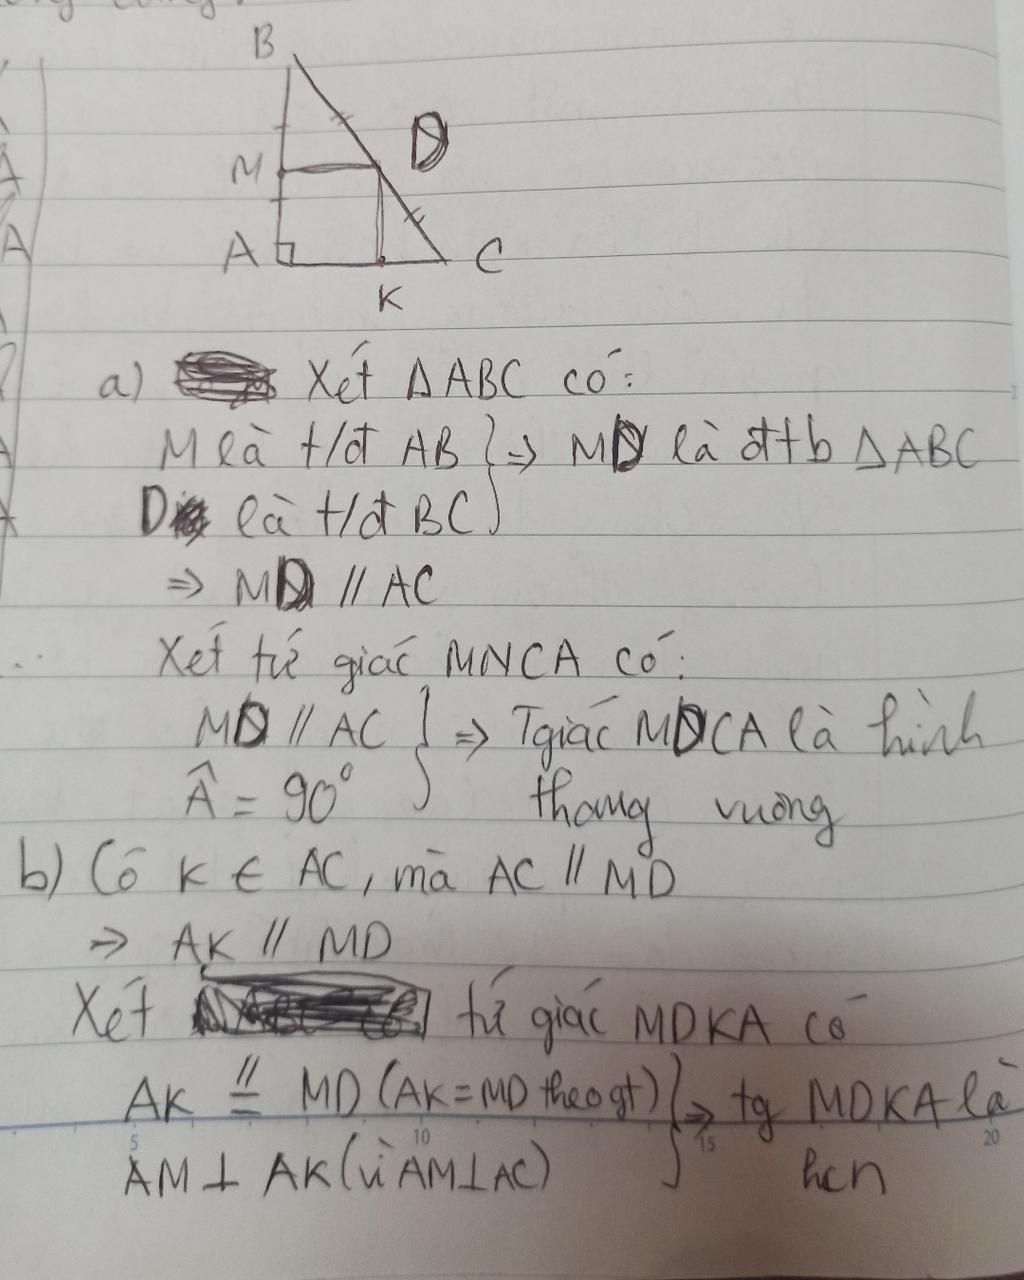 B
D
M
A
C
K
a) Xét ΔABC có:
M là t/đ AB } => MD là đtb ΔABC
D là t/đ BC
=> MD // AC
Xét tứ giác MNCA có:
MD // AC } => Tgiác MDCA là hình
Â = 90° thang vuông
b) Có K ∈ AC, mà AC // MD
=> AK // MD
Xét tứ giác MDKA có
AK //= MD (AK=MD theo gt) } => tg MDKA là
AM ⊥ AK (vì AM ⊥ AC) hcn
5 10 15 20